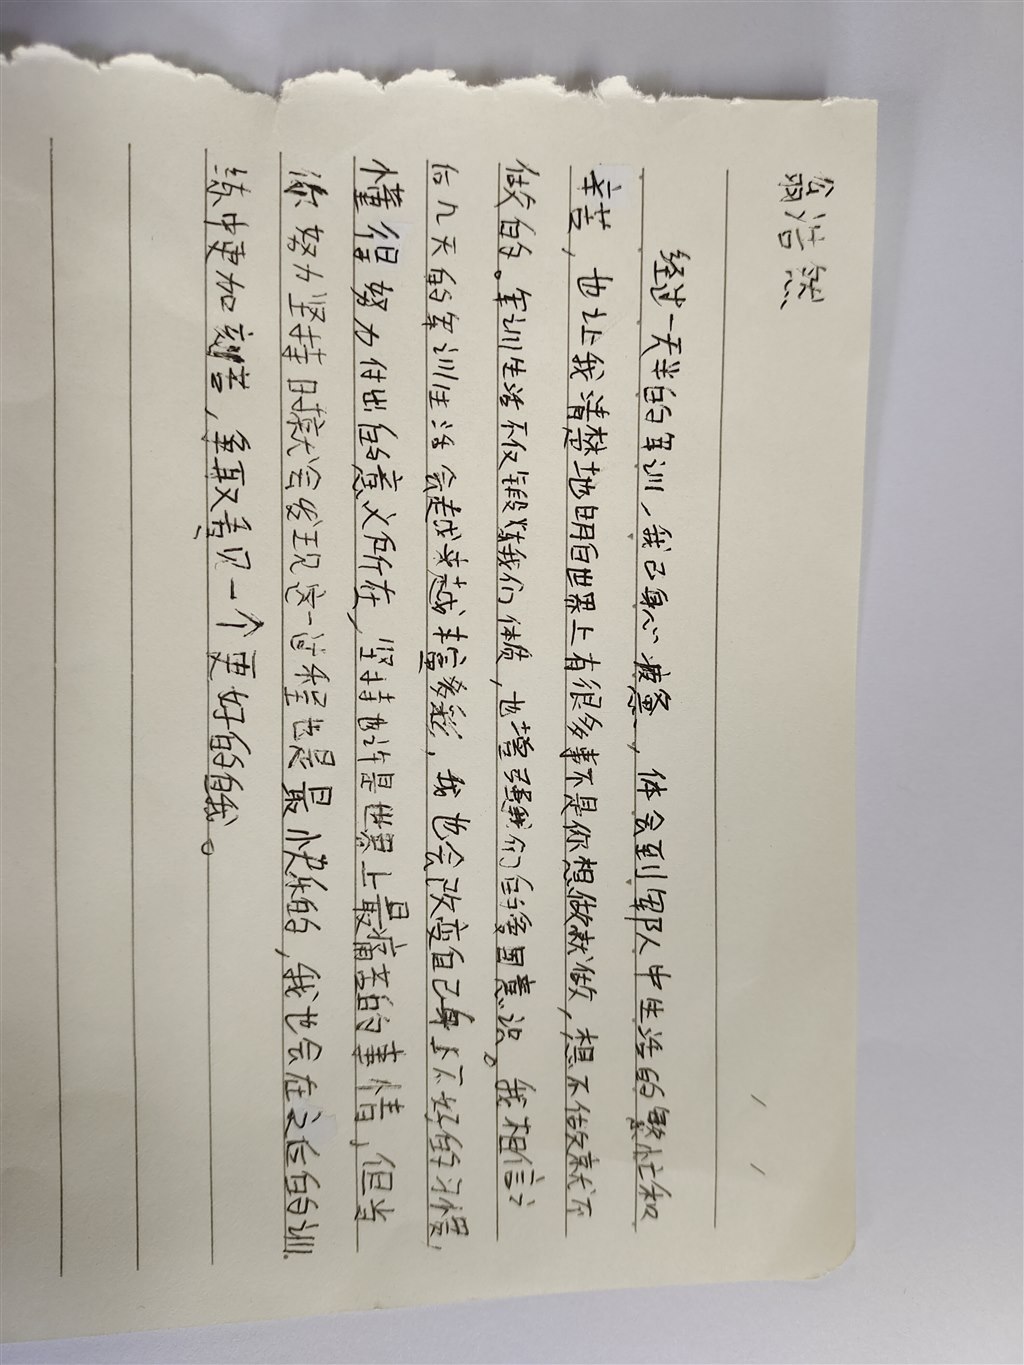 翁浩然
经过一天半的军训,我已身心疲惫,体会到军人中生活的繁忙和
辛苦,也让我清楚地明白世界上有很多事不是你想做就做,想不做就不
做的。军训生活不仅锻炼我们体质,也增强我们的爱国意识。我相信之
后几天的军训生活会越来越丰富多彩,我也会改变自己身上不好的习惯,
懂得努力付出的意义所在,坚持也许是世界上最痛苦的事情,但当
你努力坚持时就会发现这一过程也是最快乐的,我也会在之后的训
练中更加刻苦,争取看见一个更好的自我。